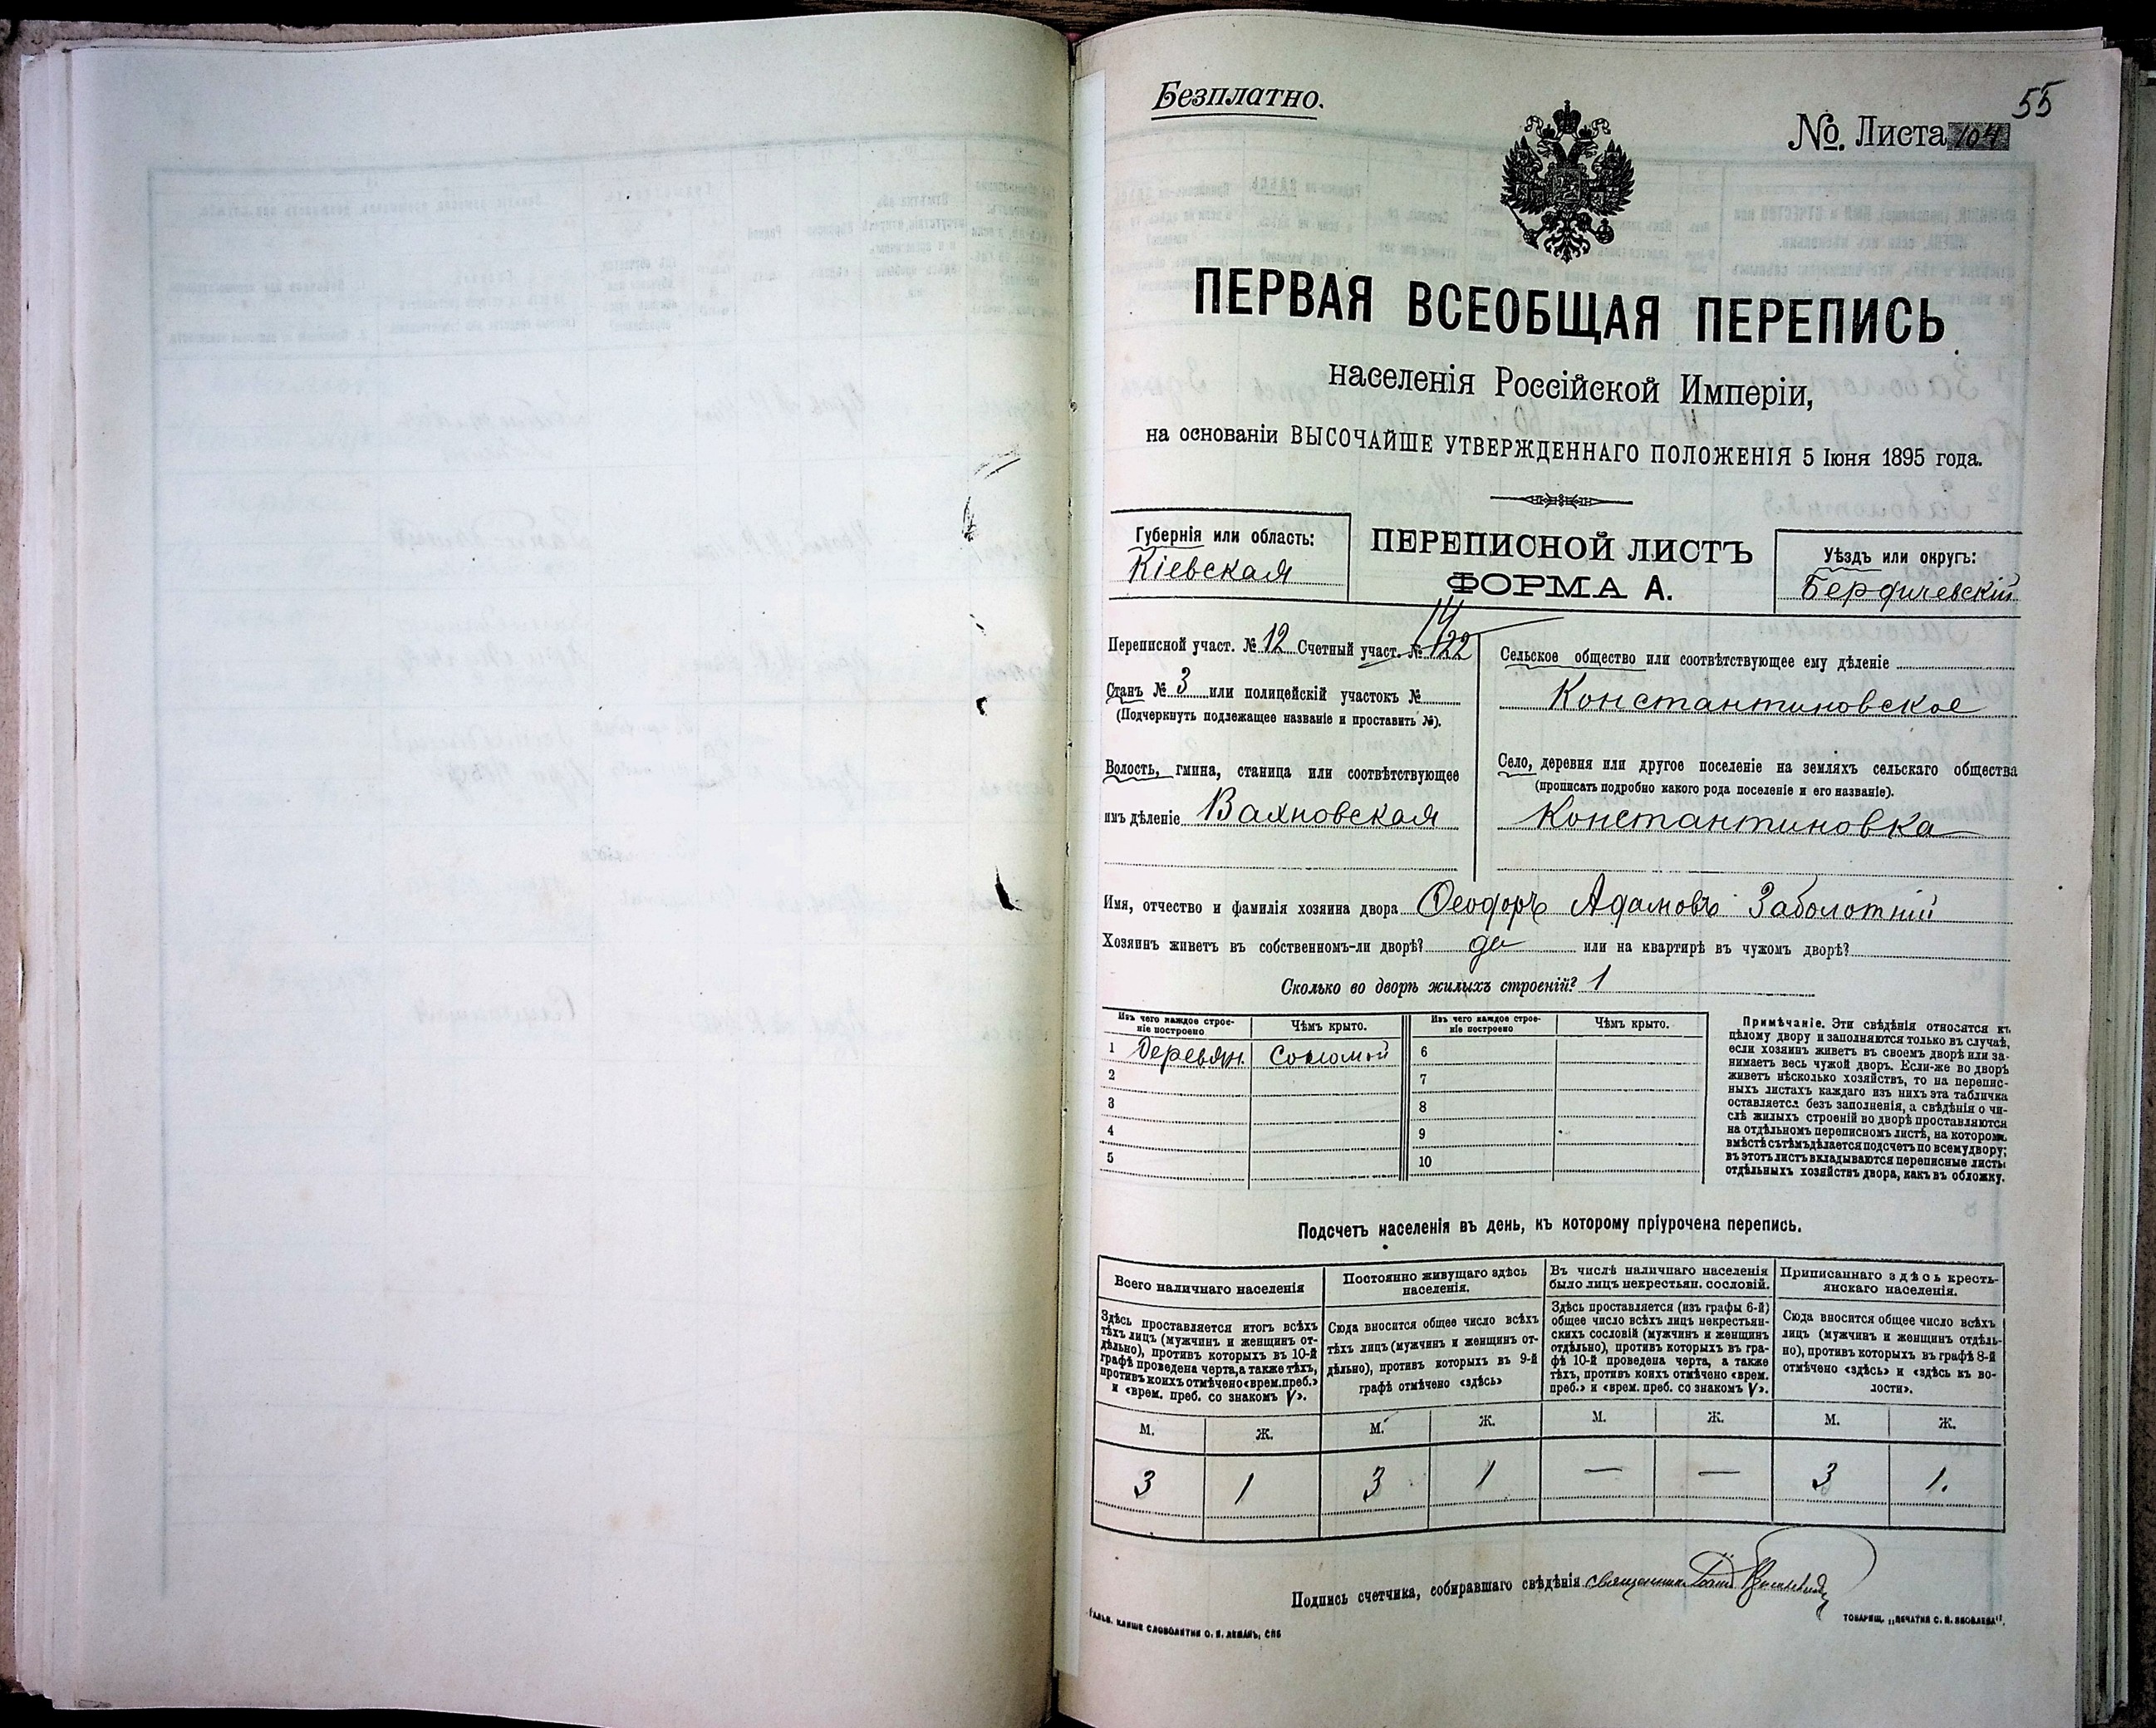 Безплатно.
55
№. Листа 104
ПЕРВАЯ ВСЕОБЩАЯ ПЕРЕПИСЬ
населенія Россійской Имперіи,
на основаніи ВЫСОЧАЙШЕ УТВЕРЖДЕННАГО ПОЛОЖЕНІЯ 5 Іюня 1895 года.
Губернія или область:
Кіевская
ПЕРЕПИСНОЙ ЛИСТЪ
ФОРМА А.
Уѣздъ или округъ:
Бердичевскій
14
Переписной участ. № 12 Счетный участ. № 122
Станъ № 3 или полицейскій участокъ №
(Подчеркнуть подлежащее названіе и проставить №).
Волость, гмина, станица или соотвѣтствующее
имъ дѣленіе Вахновская
Сельское общество или соотвѣтствующее ему дѣленіе
Константиновское
Село, деревня или другое поселеніе на земляхъ сельскаго общества
(прописать подробно какого рода поселеніе и его названіе).
Константиновка
Имя, отчество и фамилія хозяина двора Ѳеодоръ Адамовъ Заболотній
Хозяинъ живетъ въ собственномъ-ли дворѣ? да или на квартирѣ въ чужомъ дворѣ?
Сколько во дворѣ жилыхъ строеній? 1
Изъ чего каждое строе-
ніе построено
Чѣмъ крыто.
Изъ чего каждое строе-
ніе построено
Чѣмъ крыто.
1 Деревян. Соломой 6
2 7
3 8
4 9
5 10
Примѣчаніе. Эти свѣдѣнія относятся къ
цѣлому двору и заполняются только въ случаѣ,
если хозяинъ живетъ въ своемъ дворѣ или за-
нимаетъ весь чужой дворъ. Если-же во дворѣ
живетъ нѣсколько хозяйствъ, то на перепис-
ныхъ листахъ каждаго изъ нихъ эта табличка
оставляется безъ заполненія, а свѣдѣнія о чи-
слѣ жилыхъ строеній во дворѣ проставляются
на отдѣльномъ переписномъ листѣ, на которомъ
вмѣстѣ съ тѣмъ дѣлается подсчетъ по всему двору;
въ этотъ листъ вкладываются переписные листы
отдѣльныхъ хозяйствъ двора, какъ въ обложку.
Подсчетъ населенія въ день, къ которому пріурочена перепись.
Всего наличнаго населенія
Здѣсь проставляется итогъ всѣхъ
тѣхъ лицъ (мужчинъ и женщинъ от-
дѣльно), противъ которыхъ въ 10-й
графѣ проведена черта, а также тѣхъ,
противъ коихъ отмѣчено «врем. преб.»
и «врем. преб. со знакомъ V».
Постоянно живущаго здѣсь
населенія.
Сюда вносится общее число всѣхъ
тѣхъ лицъ (мужчинъ и женщинъ от-
дѣльно), противъ которыхъ въ 9-й
графѣ отмѣчено «здѣсь»
Въ числѣ наличнаго населенія
было лицъ некрестьян. сословій.
Здѣсь проставляется (изъ графы 6-й)
общее число всѣхъ лицъ некрестьян-
скихъ сословій (мужчинъ и женщинъ
отдѣльно), противъ которыхъ въ гра-
фѣ 10-й проведена черта, а также
тѣхъ, противъ коихъ отмѣчено «врем.
преб.» и «врем. преб. со знакомъ V».
Приписаннаго здѣсь кресть-
янскаго населенія.
Сюда вносится общее число всѣхъ
лицъ (мужчинъ и женщинъ отдѣль-
но), противъ которыхъ въ графѣ 8-й
отмѣчено «здѣсь» и «здѣсь къ во-
лости».
М. Ж. М. Ж. М. Ж. М. Ж.
3 1 3 1 — — 3 1.
Подпись счетчика, собиравшаго свѣдѣнія священникъ
Гальв. клише словолитни О. И. Леманъ, СПБ
Товарищ. „Печатня С. П. Яковлева“.